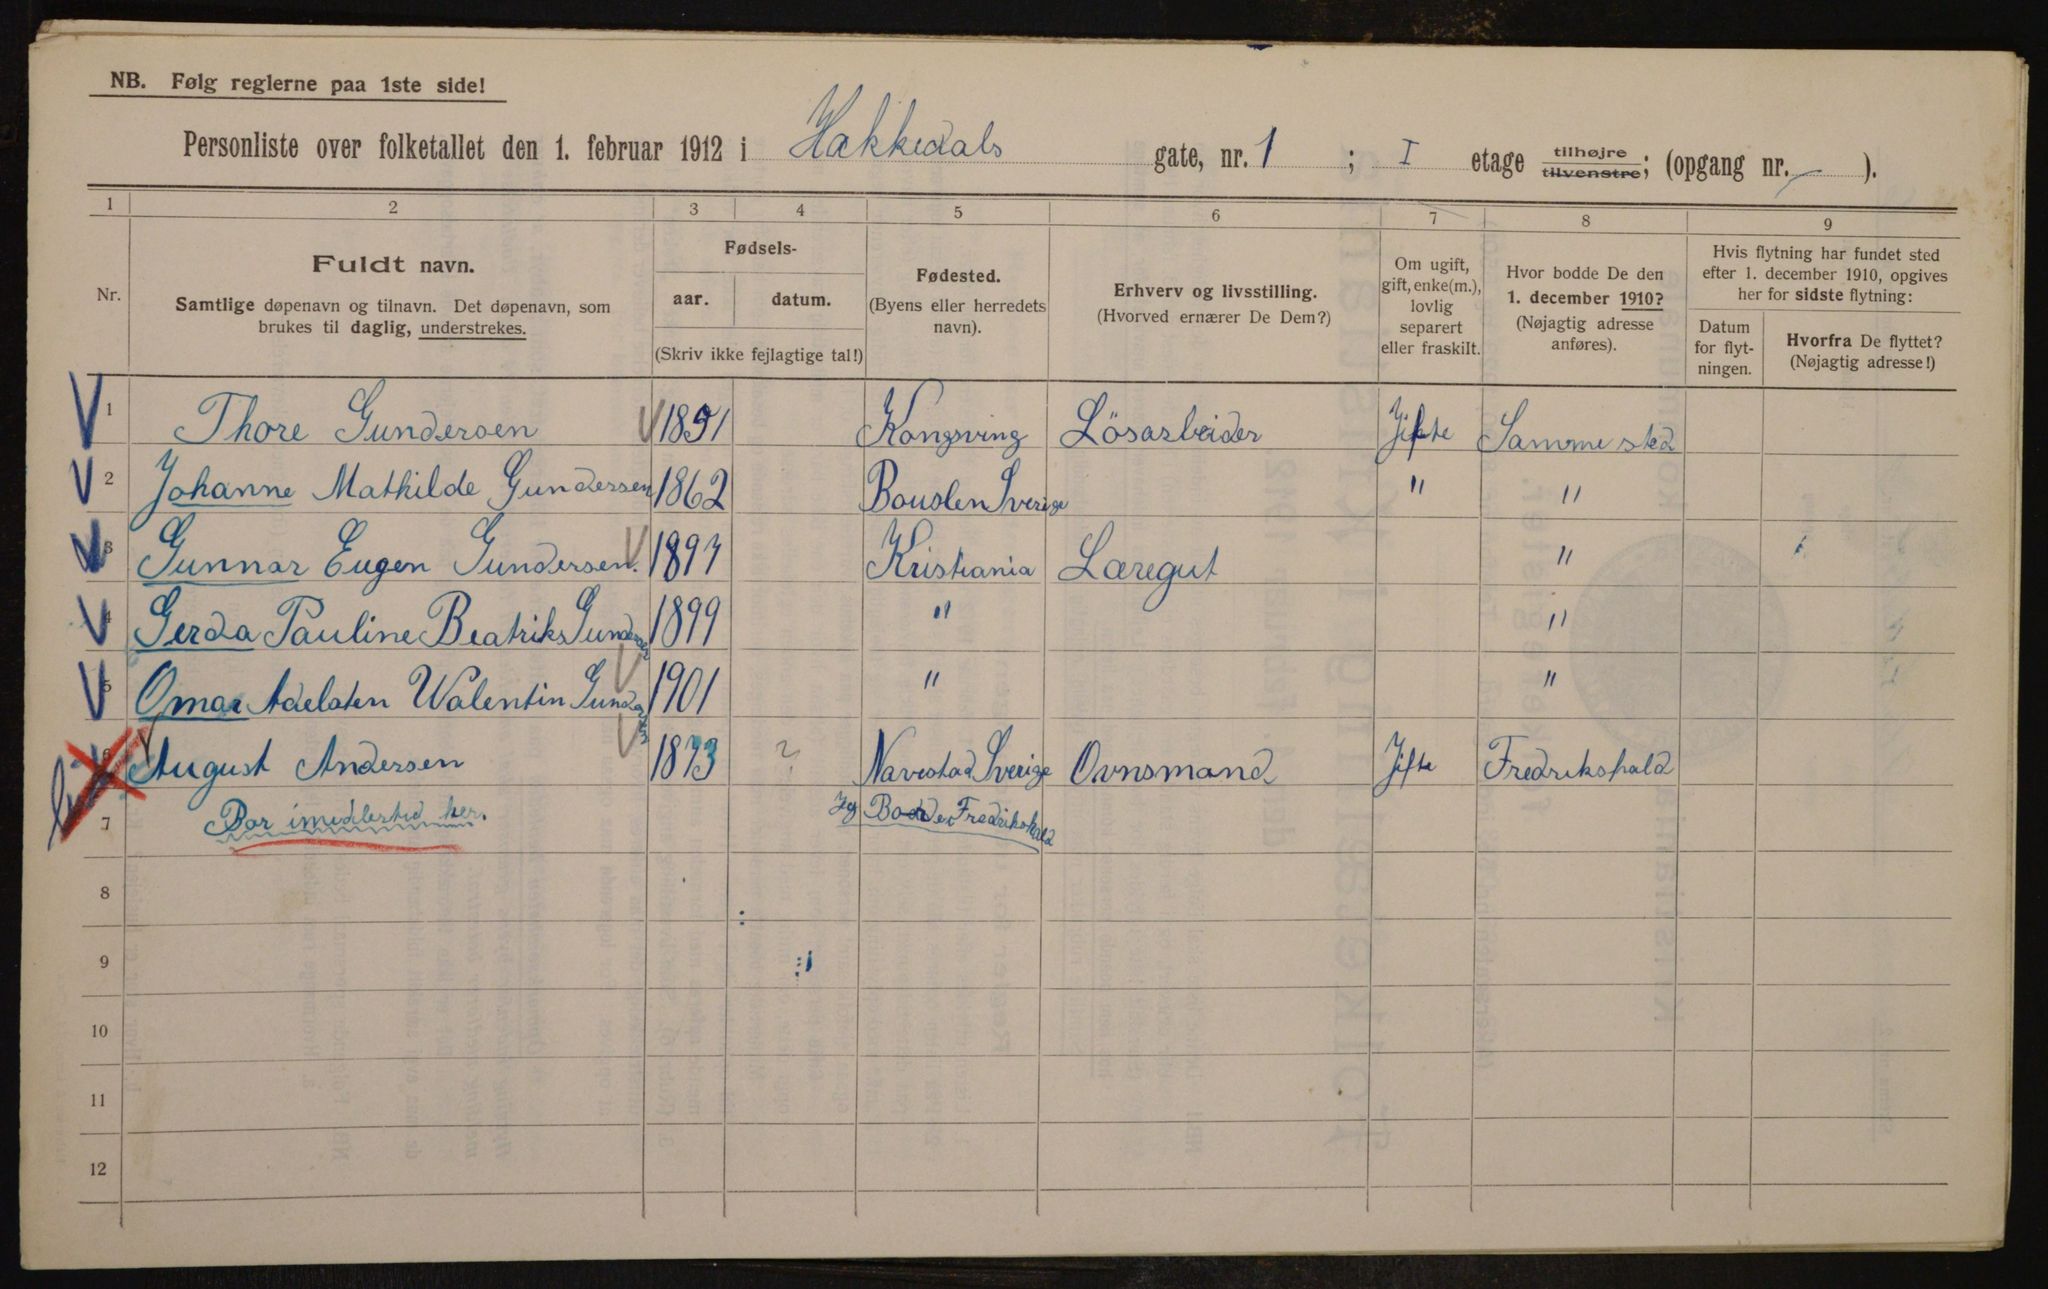 NB. Følg reglerne paa 1ste side!
Personliste over folketallet den 1. februar 1912 i Hakkedals gate, nr. 1 ; I etage tilhøjre tilvenstre; (opgang nr. — ).
1 2 3 4 5 6 7 8 9
Nr.
Fuldt navn.
Samtlige døpenavn og tilnavn. Det døpenavn, som
brukes til daglig, understrekes.
Fødsels-
aar. datum.
(Skriv ikke fejlagtige tal!)
Fødested.
(Byens eller herredets
navn).
Erhverv og livsstilling.
(Hvorved ernærer De Dem?)
Om ugift,
gift, enke(m.),
lovlig
separert
eller fraskilt.
Hvor bodde De den
1. december 1910?
(Nøjagtig adresse
anføres).
Hvis flytning har fundet sted
efter 1. december 1910, opgives
her for sidste flytning:
Datum
for flyt-
ningen.
Hvorfra De flyttet?
(Nøjagtig adresse!)
1 Thore Gundersen Kongsving Lösarbeider Jifte Samme sted
2 Johanne Mathilde Gundersen 1862 Bouslen Sverige " "
3 Gunnar Eugen Gundersen. 1897 Kristiania Læregut "
4 Gerda Pauline Beatriks Gundersen 1899 " "
5 Omar Adelsten Walentin Gundersen 1901 " "
6 August Andersen 1873 Navestad Sverige Ovnsmand Jifte Fredrikshald
7 Bor imidlertid her. Jeg Boede Fredrikshald
8
9
10
11
12